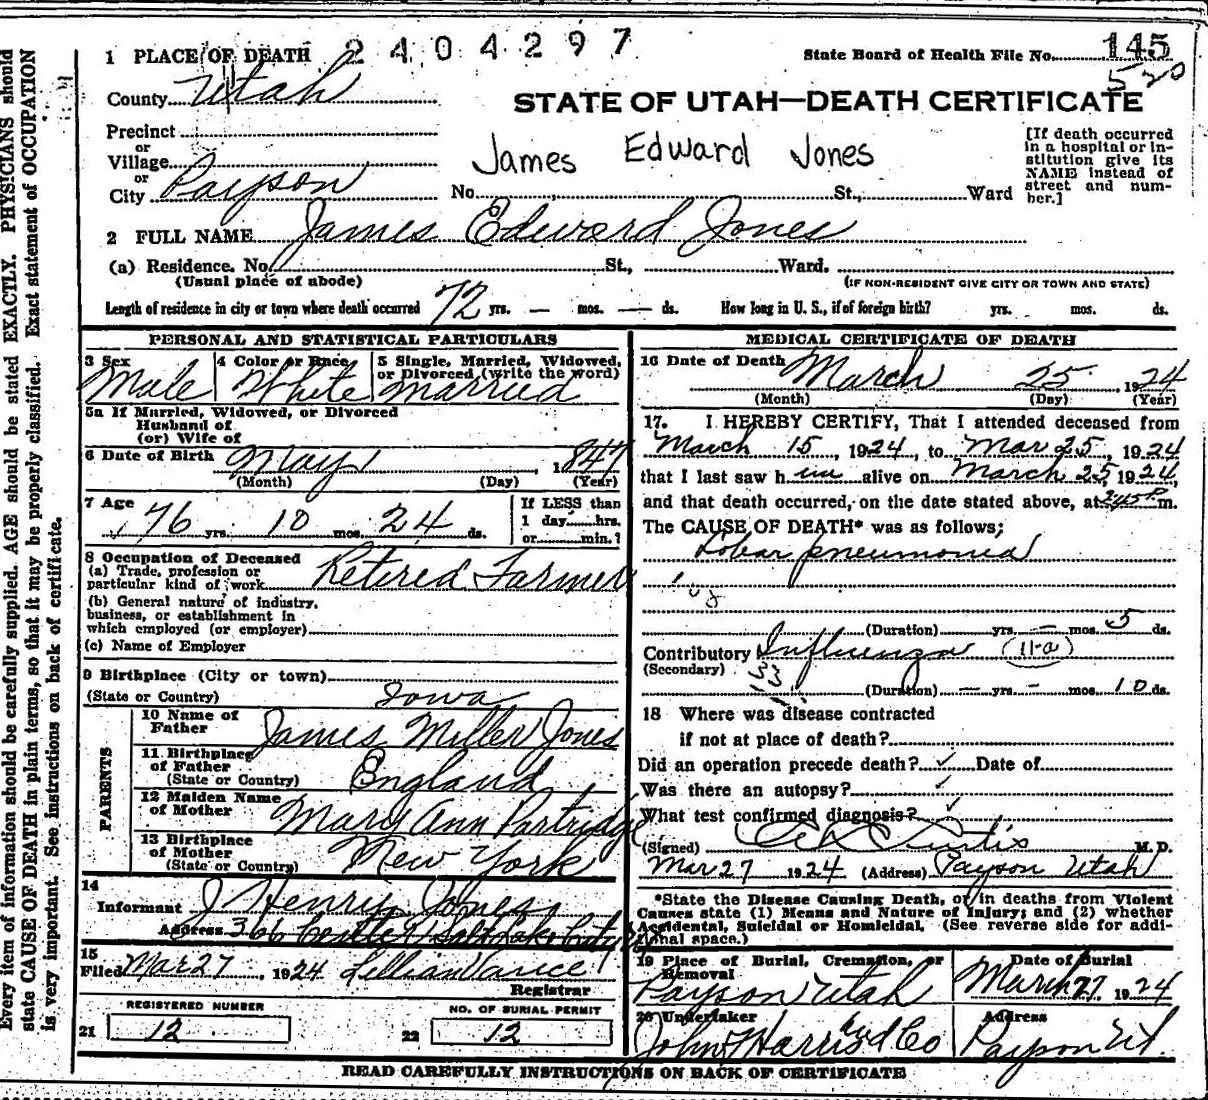 Every item of information should be carefully supplied. AGE should be stated EXACTLY. PHYSICIANS should
state CAUSE OF DEATH in plain terms, so that it may be properly classified. Exact statement of OCCUPATION
is very important. See instructions on back of certificate.
2404297
1 PLACE OF DEATH
State Board of Health File No. 145
520
County Utah
STATE OF UTAH—DEATH CERTIFICATE
Precinct
or
Village
or
City Payson
James Edward Jones
No. St., Ward
[If death occurred
in a hospital or in-
stitution give its
NAME instead of
street and num-
ber.]
2 FULL NAME James Edward Jones
(a) Residence. No. St., Ward.
(Usual place of abode)
(IF NON-RESIDENT GIVE CITY OR TOWN AND STATE)
Length of residence in city or town where death occurred 72 yrs. — mos. — ds. How long in U. S., if of foreign birth? yrs. mos. ds.
PERSONAL AND STATISTICAL PARTICULARS
3 Sex
Male
4 Color or Race
White
5 Single, Married, Widowed,
or Divorced (write the word)
Married
5a If Married, Widowed, or Divorced
Husband of
(or) Wife of
6 Date of Birth May 1, 1847
(Month) (Day) (Year)
7 Age
76 yrs. 10 mos. 24 ds.
If LESS than
1 day hrs.
or min.?
8 Occupation of Deceased
(a) Trade, profession or
particular kind of work Retired Farmer
(b) General nature of industry,
business, or establishment in
which employed (or employer)
(c) Name of Employer
9 Birthplace (City or town)
(State or Country) Iowa
PARENTS
10 Name of
Father James Miller Jones
11 Birthplace
of Father
(State or Country) England
12 Maiden Name
of Mother Mary Ann Partridge
13 Birthplace
of Mother
(State or Country) New York
14
Informant J Henry Jones
Address 366 Salt Lake City
15
Filed Mar 27, 1924 Lillian Vance
Registrar
REGISTERED NUMBER
21 12
NO. OF BURIAL PERMIT
22 12
MEDICAL CERTIFICATE OF DEATH
16 Date of Death March 25, 1924
(Month) (Day) (Year)
17. I HEREBY CERTIFY, That I attended deceased from
March 15, 1924, to Mar 25, 1924
that I last saw him alive on March 25, 1924,
and that death occurred, on the date stated above, at 245 P m.
The CAUSE OF DEATH* was as follows;
Lobar pneumonia
(Duration) yrs. — mos. 5 ds.
Contributory Influenza (11-a)
(Secondary)
(Duration) — yrs. — mos. 10 ds.
18 Where was disease contracted
if not at place of death?
Did an operation precede death? ✓ Date of
Was there an autopsy? ✓
What test confirmed diagnosis? ✓
(Signed) Curtis M. D.
Mar 27 1924 (Address) Payson Utah
*State the Disease Causing Death, or in deaths from Violent
Causes state (1) Means and Nature of Injury; and (2) whether
Accidental, Suicidal or Homicidal. (See reverse side for addi-
tional space.)
19 Place of Burial, Cremation, or
Removal
Payson Utah
Date of Burial
March 27 1924
20 Undertaker
John Harris Co
Address
Payson Ut.
READ CAREFULLY INSTRUCTIONS ON BACK OF CERTIFICATE